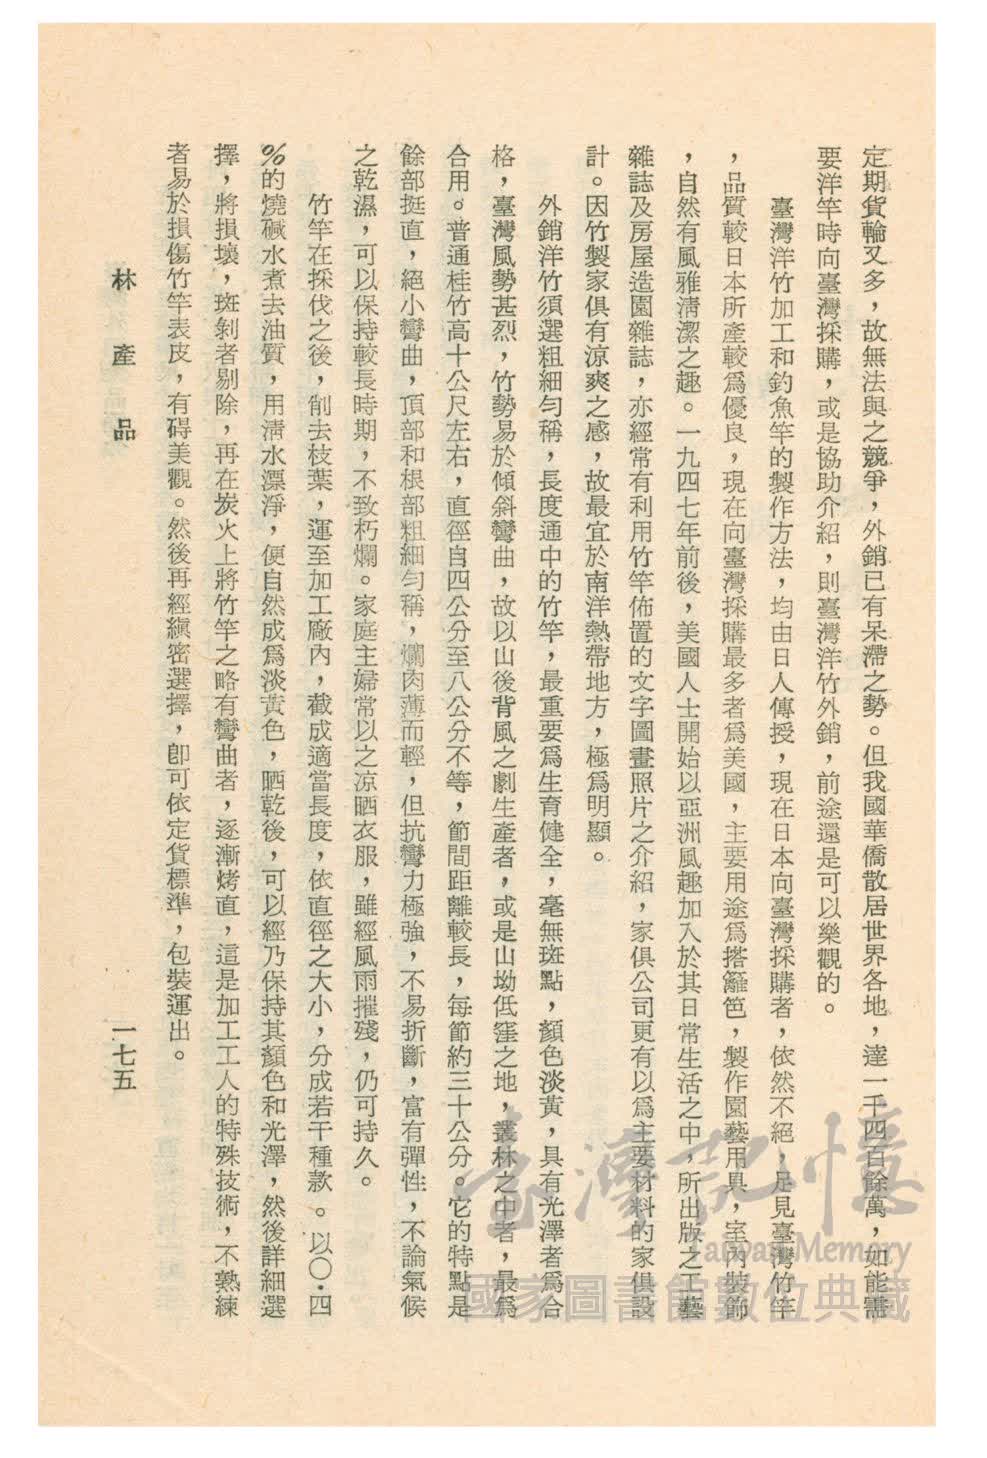 定期貨輪又多，故無法與之競爭，外銷已有呆滯之勢。但我國華僑散居世界各地，達一千四百餘萬，如能需
要洋竿時向臺灣採購，或是協助介紹，則臺灣洋竹外銷，前途還是可以樂觀的。
臺灣洋竹加工和釣魚竿的製作方法，均由日人傳授，現在日本向臺灣採購者，依然不絕，足見臺灣竹竿
，品質較日本所產較爲優良，現在向臺灣採購最多者爲美國，主要用途爲搭籬笆，製作園藝用具，室內裝飾
，自然有風雅淸潔之趣。一九四七年前後，美國人士開始以亞洲風趣加入於其日常生活之中，所出版之工藝
雜誌及房屋造園雜誌，亦經常有利用竹竿佈置的文字圖畫照片之介紹，家俱公司更有以爲主要材料的家俱設
計。因竹製家俱有凉爽之感，故最宜於南洋熱帶地方，極爲明顯。
外銷洋竹須選粗細勻稱，長度通中的竹竿，最重要爲生育健全，毫無斑點，顏色淡黃，具有光澤者爲合
格，臺灣風勢甚烈，竹勢易於傾斜彎曲，故以山後背風之劇生產者，或是山坳低窪之地，叢林之中者，最爲
合用。普通桂竹高十公尺左右，直徑自四公分至八公分不等，節間距離較長，每節約三十公分。它的特點是
餘部挺直，絕小彎曲，頂部和根部粗細勻稱，爛肉薄而輕，但抗彎力極強，不易折斷，富有彈性，不論氣候
之乾濕，可以保持較長時期，不致朽爛。家庭主婦常以之凉晒衣服，雖經風雨摧殘，仍可持久。
竹竿在採伐之後，削去枝葉，運至加工廠內，截成適當長度，依直徑之大小，分成若干種款。以〇・四
%的燒碱水煮去油質，用淸水漂淨，便自然成爲淡黃色，晒乾後，可以經乃保持其顏色和光澤，然後詳細選
擇，將損壞，斑剝者剔除，再在炭火上將竹竿之略有彎曲者，逐漸烤直，這是加工工人的特殊技術，不熟練
者易於損傷竹竿表皮，有碍美觀。然後再經縝密選擇，卽可依定貨標準，包裝運出。
林產品
一七五
臺灣記憶
Taiwan Memory
國家圖書館數位典藏